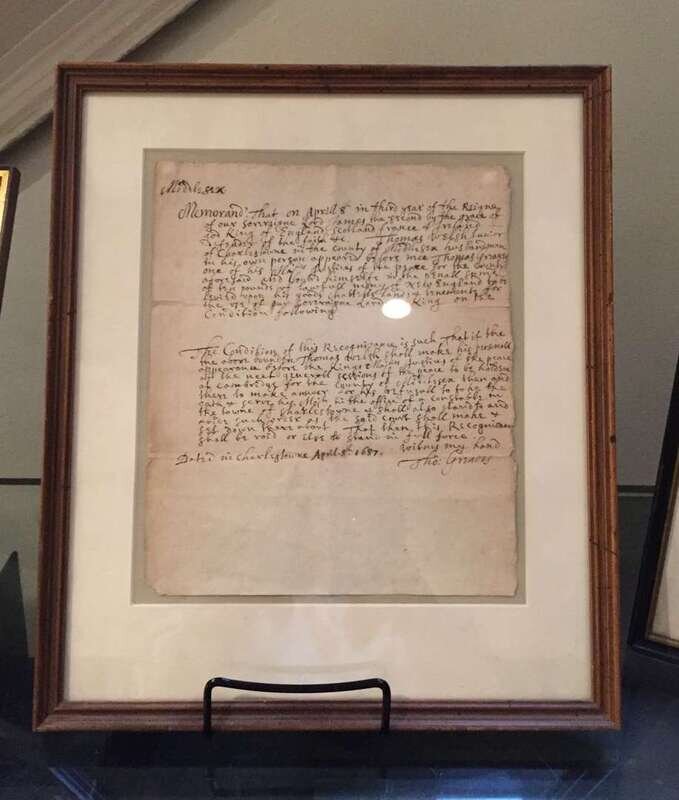 Middlesex
Memorand: That on Aprill 8 in third year of the Reigne
of our Soveraigne Lord James the Second by the grace of
God King of England Scotland France & Ireland
Defender of the faith &c. Thomas Welsh Junior
of Charlestowne in the County of Midlesex husbandman
in his own person appeared before mee Thomas Greaves
one of his Justices of the peace for the County
aforesaid and bound himselfe in the penall summe
of ten pounds of lawfull money of New England to be
levied upon his goods chattells lands & tenements for
the use of our Soveraigne Lord the King on the
Condition following
The Condition of this Recognizance is such that if the
the above bounden Thomas Welsh shall make his personall
appearance before the Kings Justices of the peace
at the next generall sessions of the peace to be holden
at Cambridg for the County of Midlesex then and
there to make answer for his refusall to take the
oath & serve his in the office of a Constable in
the towne of Charlestowne & shall also stand to and
such order as the said Court shall make &
set down there about That then this Recognizance
shall be void or else to stand in full force
witnes my hand
Dated in Charlestowne Aprill 8th 1687.
Tho: Greaves